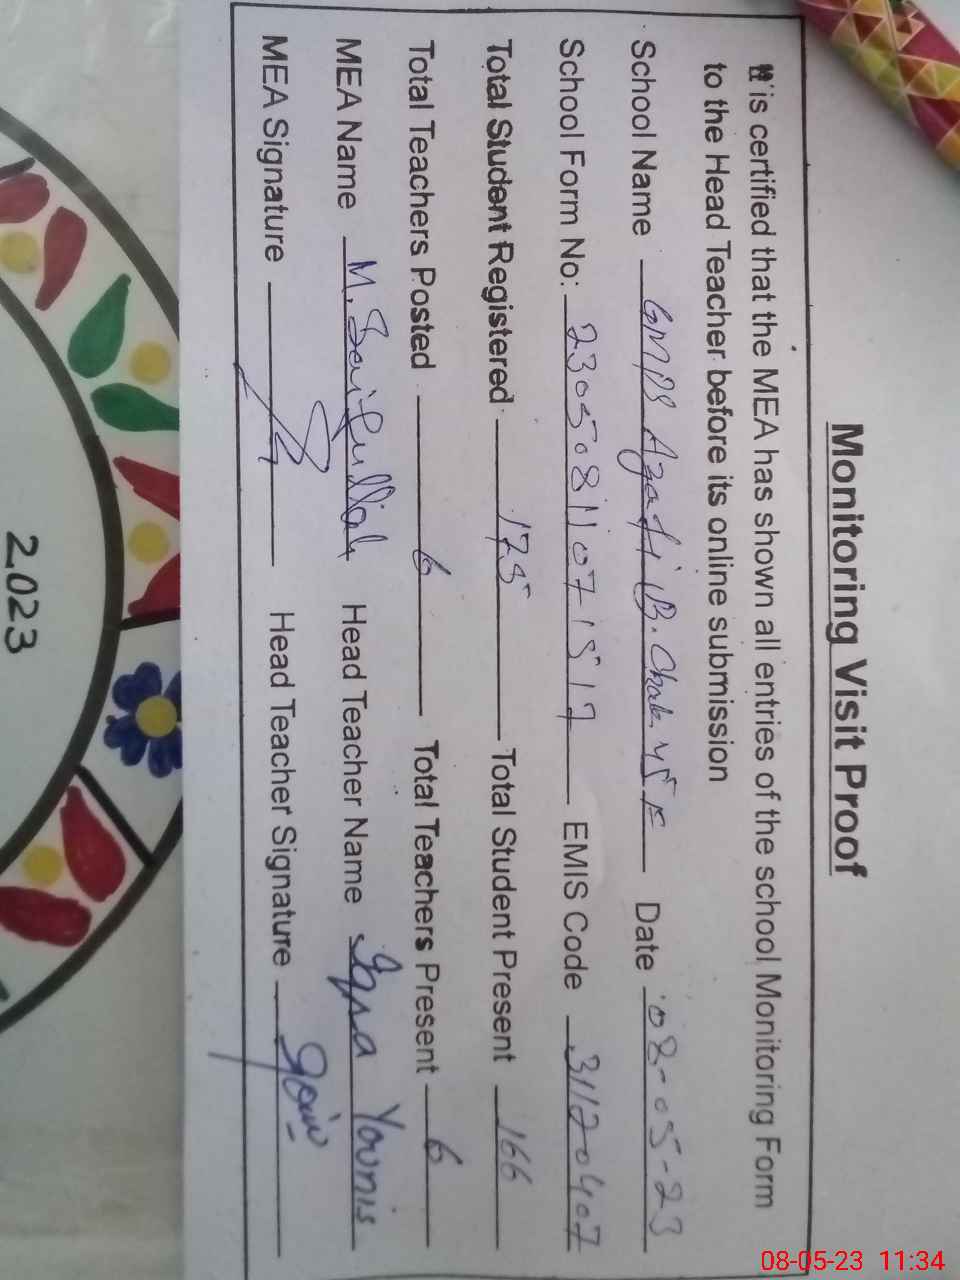 Monitoring Visit Proof
It is certified that the MEA has shown all entries of the school Monitoring Form
to the Head Teacher before its online submission
School Name GMPS Azadi B. Chak 45 F Date 08-05-23
School Form No: 23050811071517 EMIS Code 31120407
Total Student Registered 175 Total Student Present 166
Total Teachers Posted 6 Total Teachers Present 6
MEA Name M. Saifullah Head Teacher Name Iqra Younis
MEA Signature Head Teacher Signature
2023
08-05-23 11:34